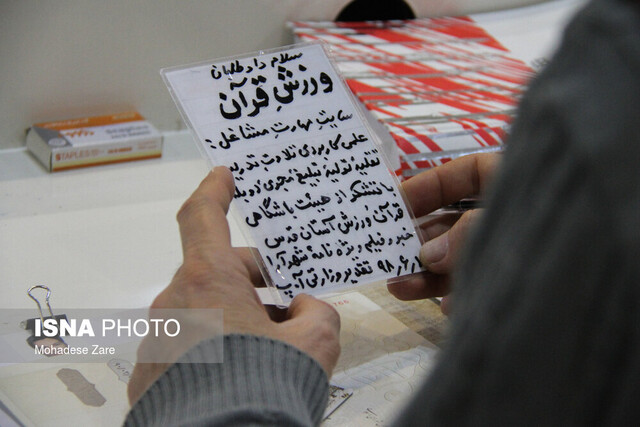 سلام داوطلبان
ورزشِ قرآن
سایتِ مهارتِ مشاغل:
علمی کاربردی تلاوت تدریس
تغذیه تولید تبلیغ مُجری
با تشکر از هیئت باشگاهی
قرآن وُرزش آستان قدس
خبر و فیلم ویژه نامه شهرآرا
۹۸/۶/ تقدیر وزارتی آ.پ
STAPLES
ISNA PHOTO
Mohadese Zare